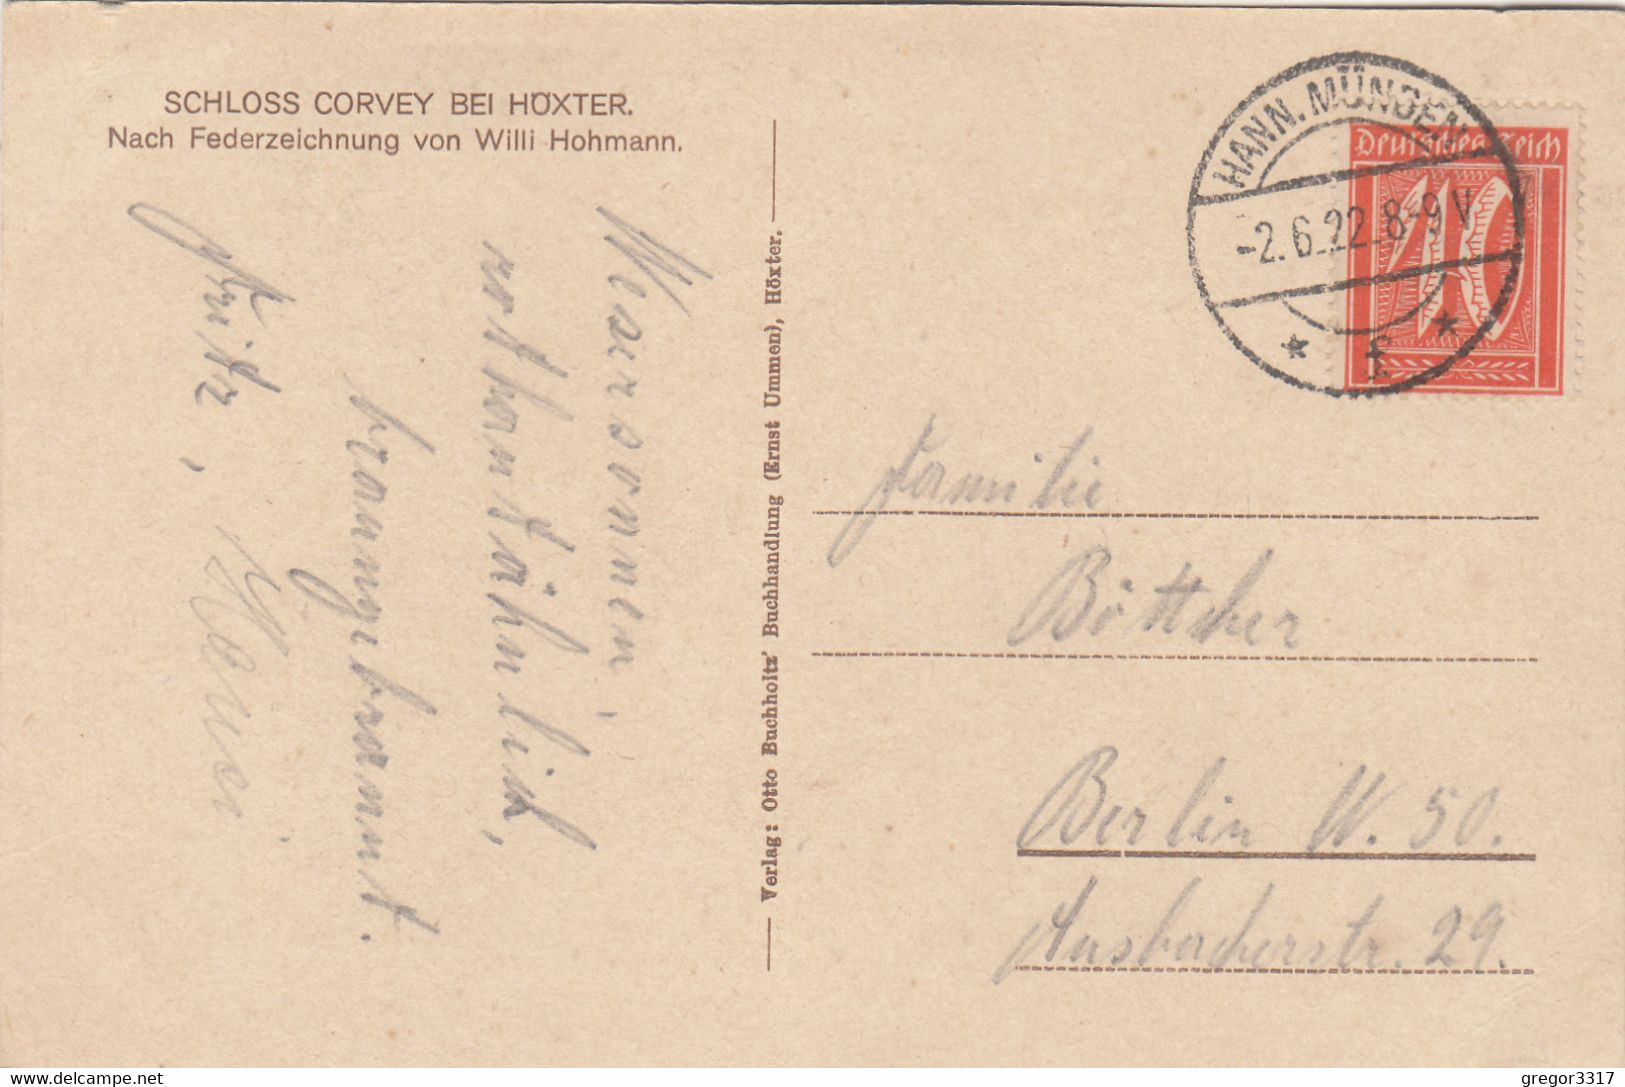 SCHLOSS CORVEY BEI HÖXTER.
Nach Federzeichnung von Willi Hohmann.
braungebrannt.
Fritz,
Verlag: Otto Buchholtz' Buchhandlung (Ernst Ummen), Höxter.
HANN. MÜNDEN
-2.6.22.8-9V
* f *
Deutsches Reich
40
Familie
Böttcher
Berlin W. 50.
Ansbacherstr. 29.
delcampe.net
gregor3317